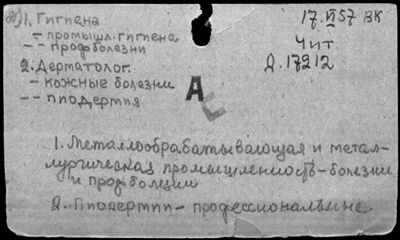 1. Гигиена
- промышл. гигиена
-- профболезни
2. Дерматолог.
- кожные болезни
-- пиодермия
17.VI 57 ВК
Чит
Д. 17212
А
1. Металлообрабатывающая и метал-
лургическая промышленность - болезни
и профболезни
2. Пиодермии - профессиональные